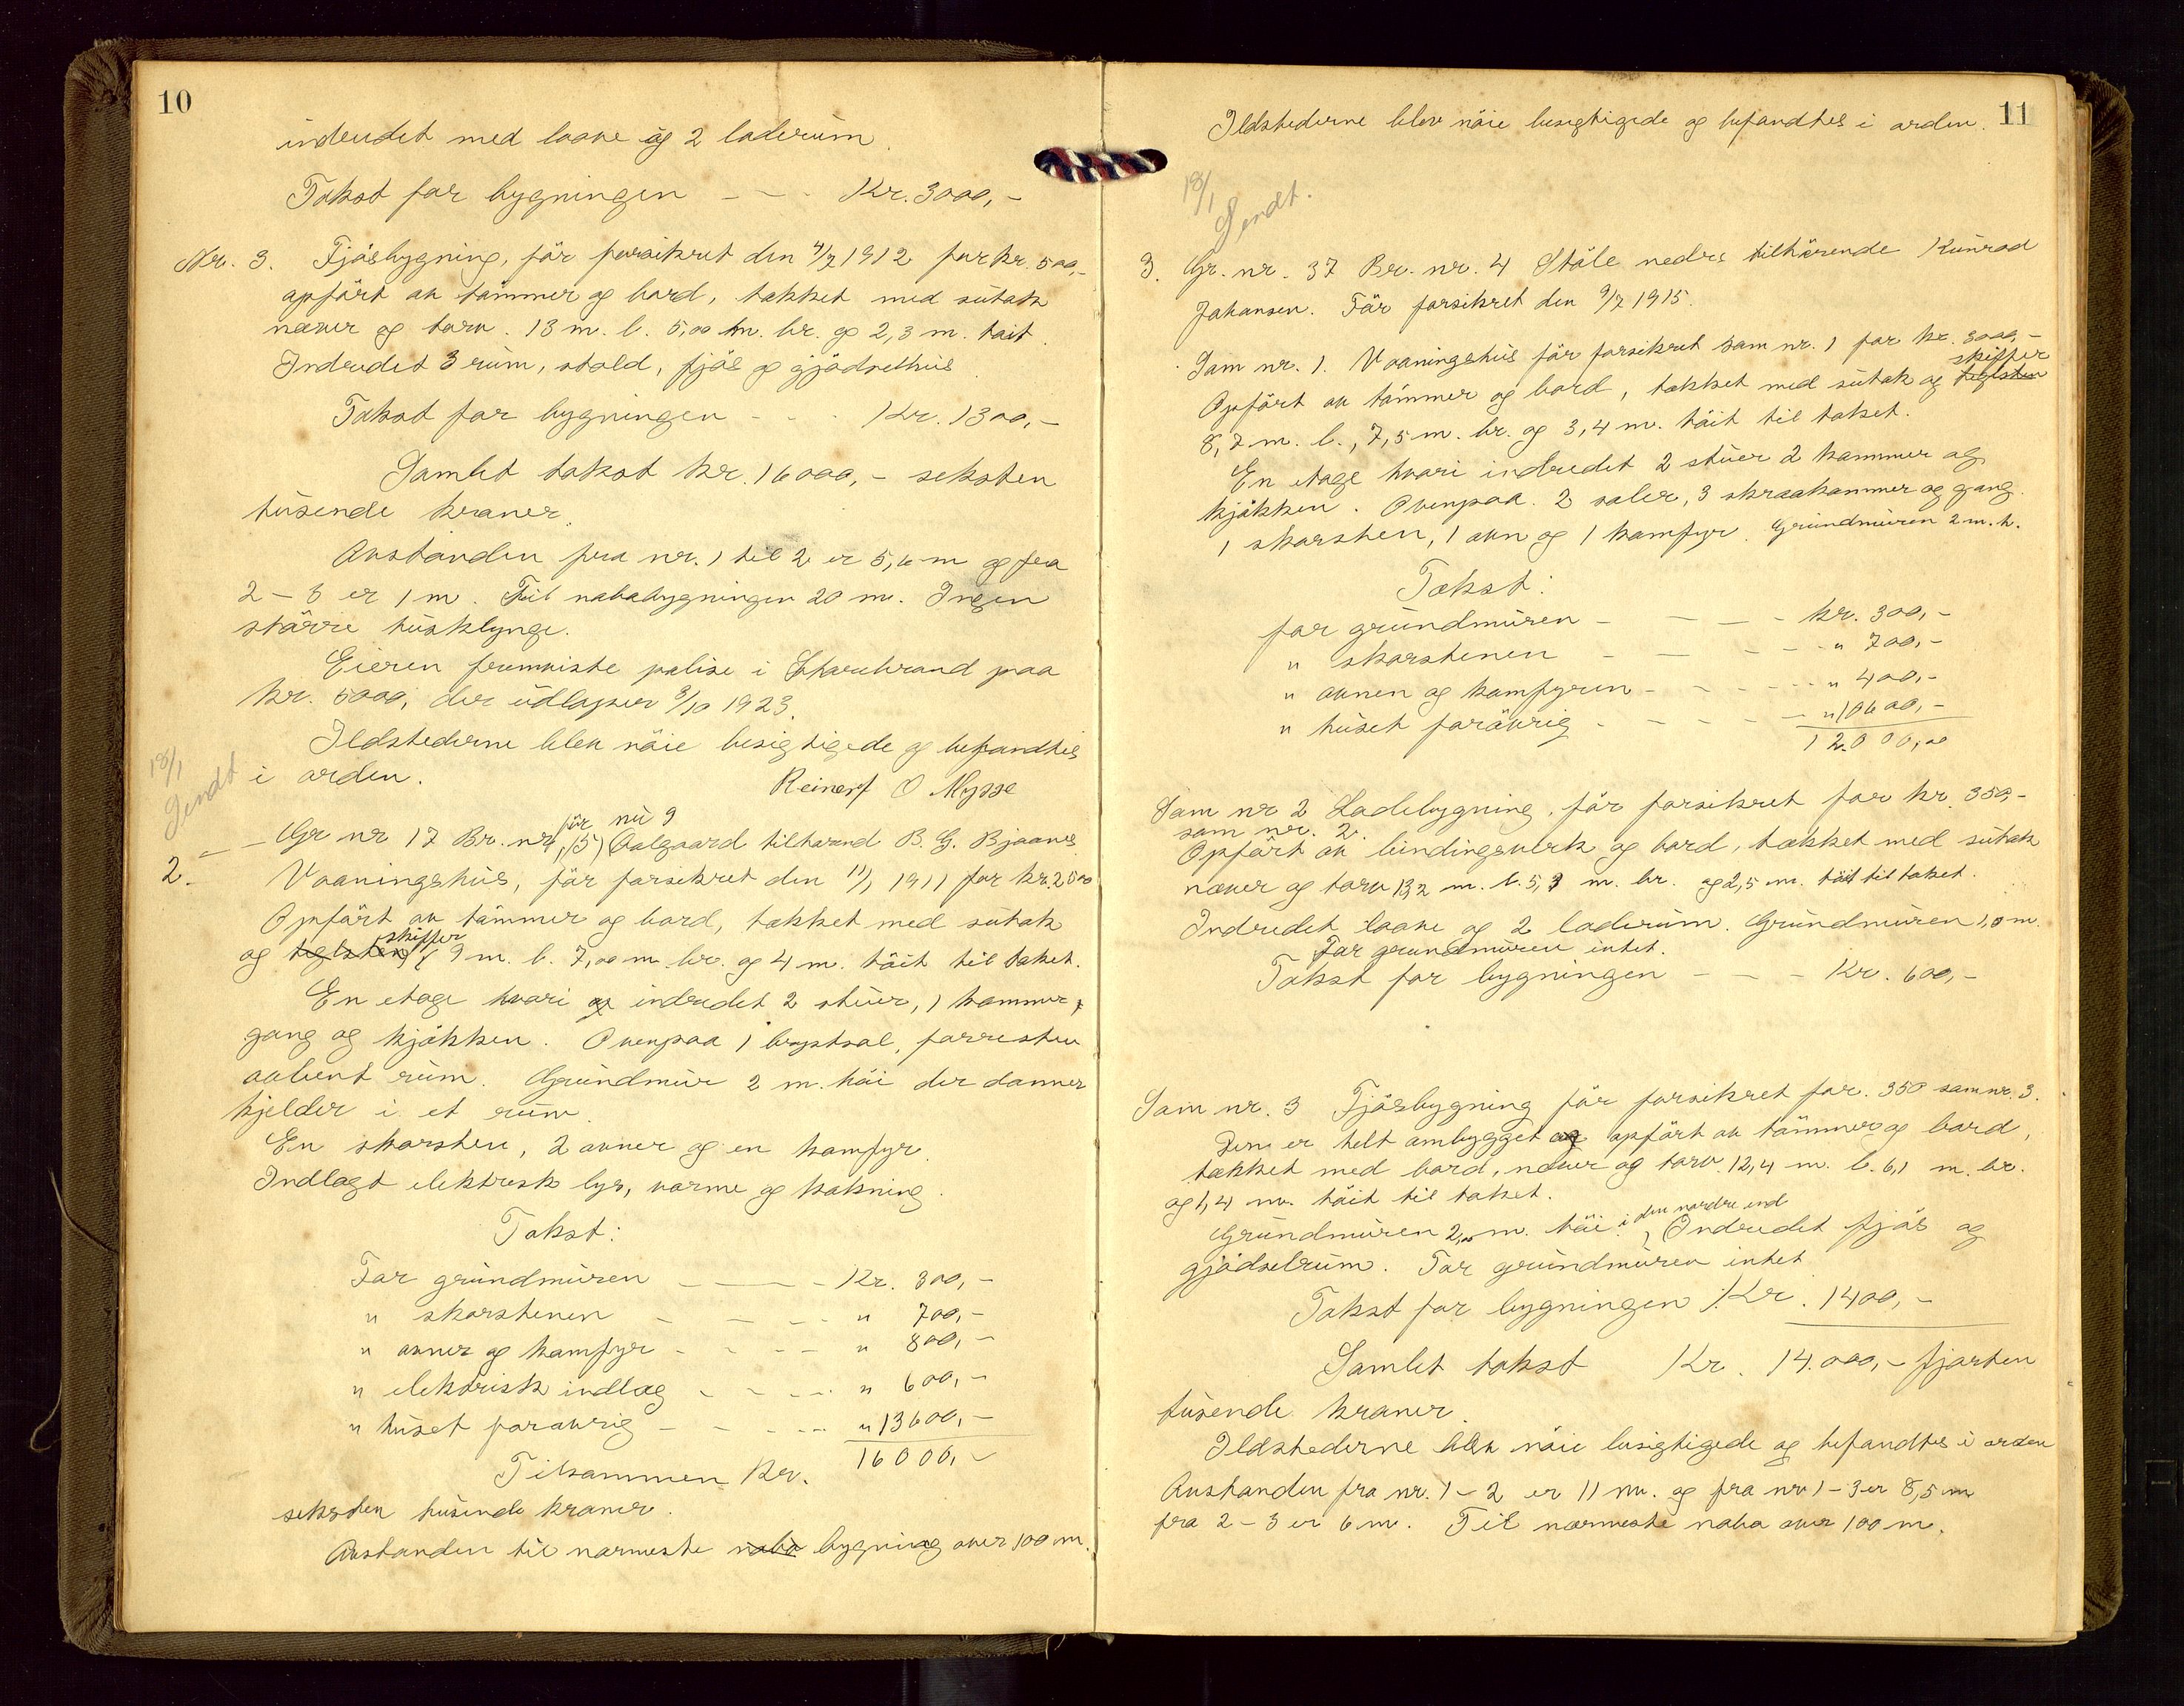 10
indredet med laave og 2 laderum.
Takst for bygningen - - - Kr. 3000,-
Nr. 3. Fjøsbygning, før forsikret den 4/7 1912 for kr. 500,-
opført av tømmer og bord, tækket med sutak
næver og torv. 13 m. l. 5,00 m. br. og 2,3 m. høit.
Indredet 3 rum, stald, fjøs og gjødselhus
Takst for bygningen - - - Kr. 1300,-
Samlet takst kr. 16000,- seksten
tusende kroner.
Avstanden fra nr. 1 til 2 er 5,6 m og fra
2 - 3 er 1 m. Til nabobygningen 20 m. Ingen
større husklynge.
Eieren fremviste polise i Storebrand paa
kr. 5000, der utløper 3/10 1923.
Ildstederne blev nøie besigtigede og befandtes
i orden.
Reinert O Mysse
18/1
Sendt
før nu 9
2. - - Gr nr 17 Br. nr. (5) Aalgaard tilhørend B. G. Bjaanes
Vaaningshus, før forsikret den 11/1 1911 for kr. 2500
Opført av tømmer og bord, tækket med sutak
skiffer
og teglsten, 9 m. l. 7,00 m br. og 4 m. høit til taket.
En etage hvori er indredet 2 stuer, 1 kammer,
gang og kjøkken. Ovenpaa 1 brystsal, forresten
aabent rum. Grundmur 2 m. høi der danner
kjelder i et rum.
En skorsten, 2 ovner og en komfyr.
Indlagt elektrisk lys, varme og kokning.
Takst:
For grundmuren - - - - Kr. 300,-
" skorstenen - - - - " 700,-
" ovner og komfyr - - - - " 800,-
" elektrisk indlæg - - - - " 600,-
" huset forøvrig - - - - " 13600,-
Tilsammen Kr. 16000,-
seksten tusende kroner.
Avstanden til nærmeste nabo bygning over 100 m.
11
Ildstederne blev nøie besigtigede og befandtes i orden.
18/1
Sendt.
3. Gr. nr. 37 Br. nr. 4 Støle nedre tilhørende Kunrad
Johansen. Før forsikret den 9/7 1915.
Som nr. 1. Vaaningshus før forsikret som nr. 1 for kr. 3000,-
skiffer
Opført av tømmer og bord, tækket med sutak og teglsten
8,7 m. l., 7,5 m. br. og 3,4 m. høit til taket.
En etage hvori indredet 2 stuer 2 kammer og
kjøkken. Ovenpaa 2 saler, 3 skraakammer og gang.
1 skorsten, 1 ovn og 1 komfyr. Grundmuren 2 m. h.
Takst:
for grundmuren - - - - kr. 300,-
" skorstenen - - - - " 700,-
" ovnen og komfyren - - - - " 400,-
" huset forøvrig - - - - " 10600,-
12.000,00
Som nr 2 Ladebygning, før forsikret for kr. 350,-
som nr. 2.
Opført av bindingsverk og bord, tækket med sutak
næver og torv 13,2 m. l. 5,3 m. br. og 2,5 m. høit til taket.
Indredet laave og 2 laderum. Grundmuren 1,0 m.
For grundmuren intet.
Takst for bygningen - - - Kr. 600,-
Som nr. 3 Fjøsbygning før forsikret for. 350 som nr. 3.
Den er helt ombygget og opført av tømmer og bord,
tækket med bord, næver og torv. 12,4 m. l. 6,1 m. br.
og 1,4 m. høit til taket.
den nordre end
Grundmuren 2,00 m. høi i, Indredet fjøs og
gjødselrum. For grundmuren intet
Takst for bygningen Kr. 1400,-
Samlet takst Kr. 14.000,- fjorten
tusende kroner.
Ildstederne blev nøie besigtigede og befandtes i orden
Avstanden fra nr. 1 - 2 er 11 m. og fra nr 1 - 3 er 8,5 m
fra 2 - 3 er 6 m. Til nærmeste nabo over 100 m.